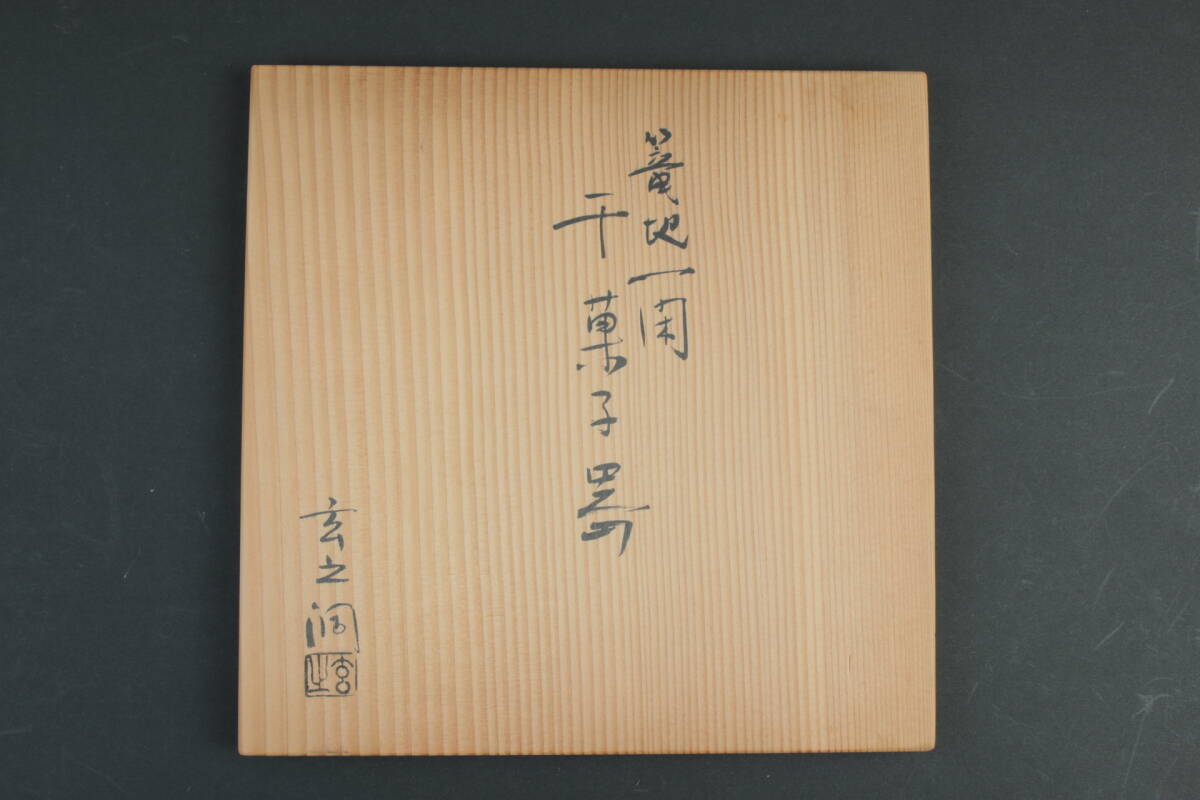 籠地一閑
干菓子器
玄之洞
玄之